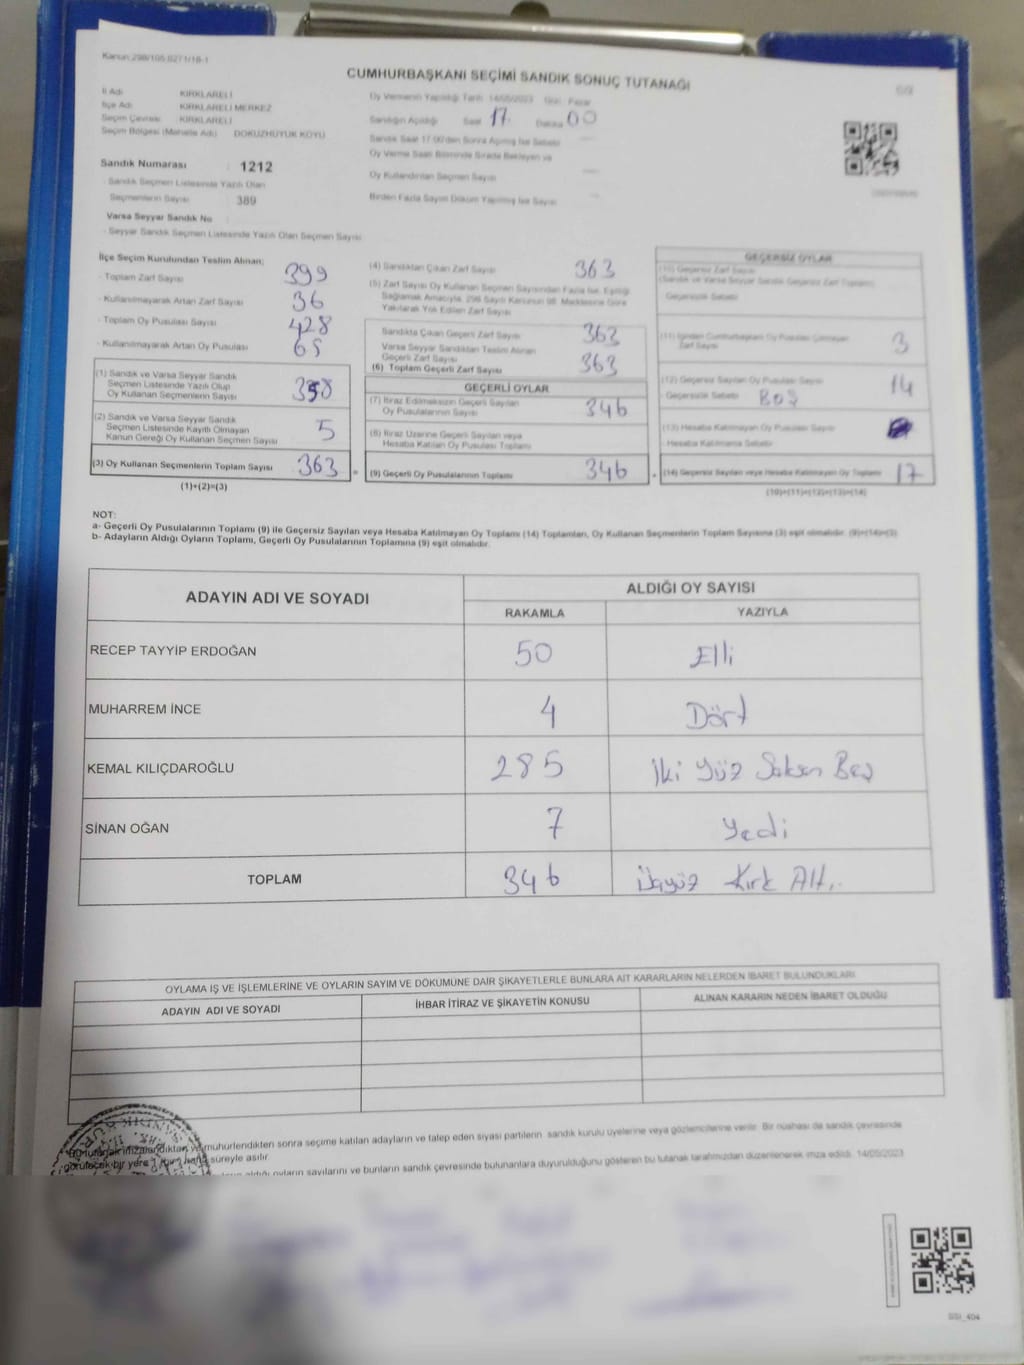 Kanun:298/105.8271/18-1
CUMHURBAŞKANI SEÇİMİ SANDIK SONUÇ TUTANAĞI
İl Adı KIRKLARELİ
İlçe Adı KIRKLARELİ MERKEZ
Seçim Çevresi KIRKLARELİ
Seçim Bölgesi (Mahalle Adı) DOKUZHÖYÜK KÖYÜ
Oy Vermenin Yapıldığı Tarih 14/05/2023 Gün Pazar
Sandığın Açıldığı Saat 17 Dakika 00
Sandık Saat 17:00'den Sonra Açılmış İse Sebebi
Oy Verme Saati Bitiminde Sırada Bekleyen ve
Oy Kullandırılan Seçmen Sayısı
Birden Fazla Sayım Döküm Yapılmış İse Sayısı
Sandık Numarası : 1212
- Sandık Seçmen Listesinde Yazılı Olan
Seçmenlerin Sayısı 389
Varsa Seyyar Sandık No
- Seyyar Sandık Seçmen Listesinde Yazılı Olan Seçmen Sayısı
İlçe Seçim Kurulundan Teslim Alınan;
- Toplam Zarf Sayısı 399
- Kullanılmayarak Artan Zarf Sayısı 36
- Toplam Oy Pusulası Sayısı 428
- Kullanılmayarak Artan Oy Pusulası 65
(1) Sandık ve Varsa Seyyar Sandık
Seçmen Listesinde Yazılı Olup
Oy Kullanan Seçmenlerin Sayısı 358
(2) Sandık ve Varsa Seyyar Sandık
Seçmen Listesinde Kayıtlı Olmayan
Kanun Gereği Oy Kullanan Seçmen Sayısı 5
(3) Oy Kullanan Seçmenlerin Toplam Sayısı 363
(1)+(2)=(3)
(4) Sandıktan Çıkan Zarf Sayısı 363
(5) Zarf Sayısı Oy Kullanan Seçmen Sayısından Fazla İse, Eşitliği
Sağlamak Amacıyla, 298 Sayılı Kanunun 98. Maddesine Göre
Yakılarak Yok Edilen Zarf Sayısı
Sandıkta Çıkan Geçerli Zarf Sayısı 363
Varsa Seyyar Sandıktan Teslim Alınan
Geçerli Zarf Sayısı
(6) Toplam Geçerli Zarf Sayısı 363
GEÇERLİ OYLAR
(7) İtiraz Edilmeksizin Geçerli Sayılan
Oy Pusulalarının Sayısı 346
(8) İtiraz Üzerine Geçerli Sayılan veya
Hesaba Katılan Oy Pusulası Toplamı
(9) Geçerli Oy Pusulalarının Toplamı 346
GEÇERSİZ OYLAR
(10) Geçersiz Zarf Sayısı
(Sandık ve Varsa Seyyar Sandık Geçersiz Zarf Toplamı)
Geçersizlik Sebebi
(11) İçinden Cumhurbaşkanı Oy Pusulası Çıkmayan
Zarf Sayısı 3
(12) Geçersiz Sayılan Oy Pusulası Sayısı 14
- Geçersizlik Sebebi BOŞ
(13) Hesaba Katılmayan Oy Pusulası Sayısı
- Hesaba Katılmama Sebebi
(14) Geçersiz Sayılan veya Hesaba Katılmayan Oy Toplamı 17
(10)+(11)+(12)+(13)=(14)
NOT:
a- Geçerli Oy Pusulalarının Toplamı (9) ile Geçersiz Sayılan veya Hesaba Katılmayan Oy Toplamı (14) Toplamları, Oy Kullanan Seçmenlerin Toplam Sayısına (3) eşit olmalıdır. (9)+(14)=(3)
b- Adayların Aldığı Oyların Toplamı, Geçerli Oy Pusulalarının Toplamına (9) eşit olmalıdır.
ADAYIN ADI VE SOYADI ALDIĞI OY SAYISI
RAKAMLA YAZIYLA
RECEP TAYYİP ERDOĞAN 50 Elli
MUHARREM İNCE 4 Dört
KEMAL KILIÇDAROĞLU 285 İki Yüz Seksen Beş
SİNAN OĞAN 7 Yedi
TOPLAM 346 Üçyüz Kırk Altı
OYLAMA İŞ VE İŞLEMLERİNE VE OYLARIN SAYIM VE DÖKÜMÜNE DAİR ŞİKAYETLERLE BUNLARA AİT KARARLARIN NELERDEN İBARET BULUNDUKLARI
ADAYIN ADI VE SOYADI İHBAR İTİRAZ VE ŞİKAYETİN KONUSU ALINAN KARARIN NEDEN İBARET OLDUĞU
Bu tutanak imzalandıktan ve mühürlendikten sonra seçime katılan adayların ve talep eden siyasi partilerin sandık kurulu üyelerine veya gözlemcilerine verilir. Bir nüshası da sandık çevresinde
görülecek bir yere 1 hafta süreyle asılır.
aldığı oyların sayılarını ve bunların sandık çevresinde bulunanlara duyurulduğunu gösteren bu tutanak tarafımızdan düzenlenerek imza edildi. 14/05/2023